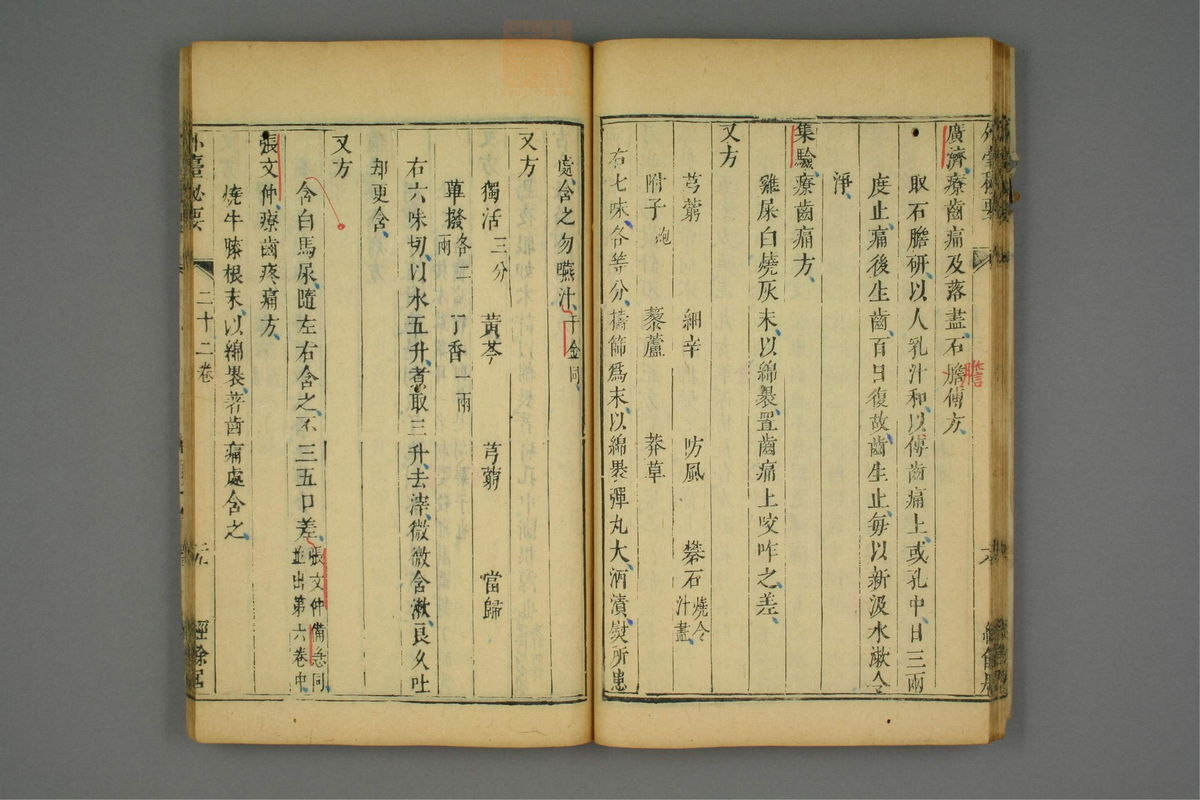 廣濟療齒痛及落盡石膽傅方
膽
取石膽研以人乳汁和以傅齒痛上或孔中日三兩
度止痛後生齒百日復故齒生止每以新汲水漱令
淨
集驗療齒痛方
雞屎白燒灰末以綿褁置齒痛上咬咋之差
又方
芎藭 細辛 防風 礬石燒令汁盡
附子炮 藜蘆 莽草
右七味各等分擣篩爲末以綿褁彈丸大酒漬熨所患
處含之勿嚥汁千金同
又方
獨活三分 黃芩 芎藭 當歸
蓽撥各二兩 丁香一兩
右六味切以水五升煮取三升去滓微微含漱良久吐
却更含
又方
含白馬尿隨左右含之不三五口差張文仲備急同並出第六卷中
張文仲療齒疼痛方
燒牛膝根末以綿褁著齒痛處含之
外臺秘要 二十二卷 經餘居